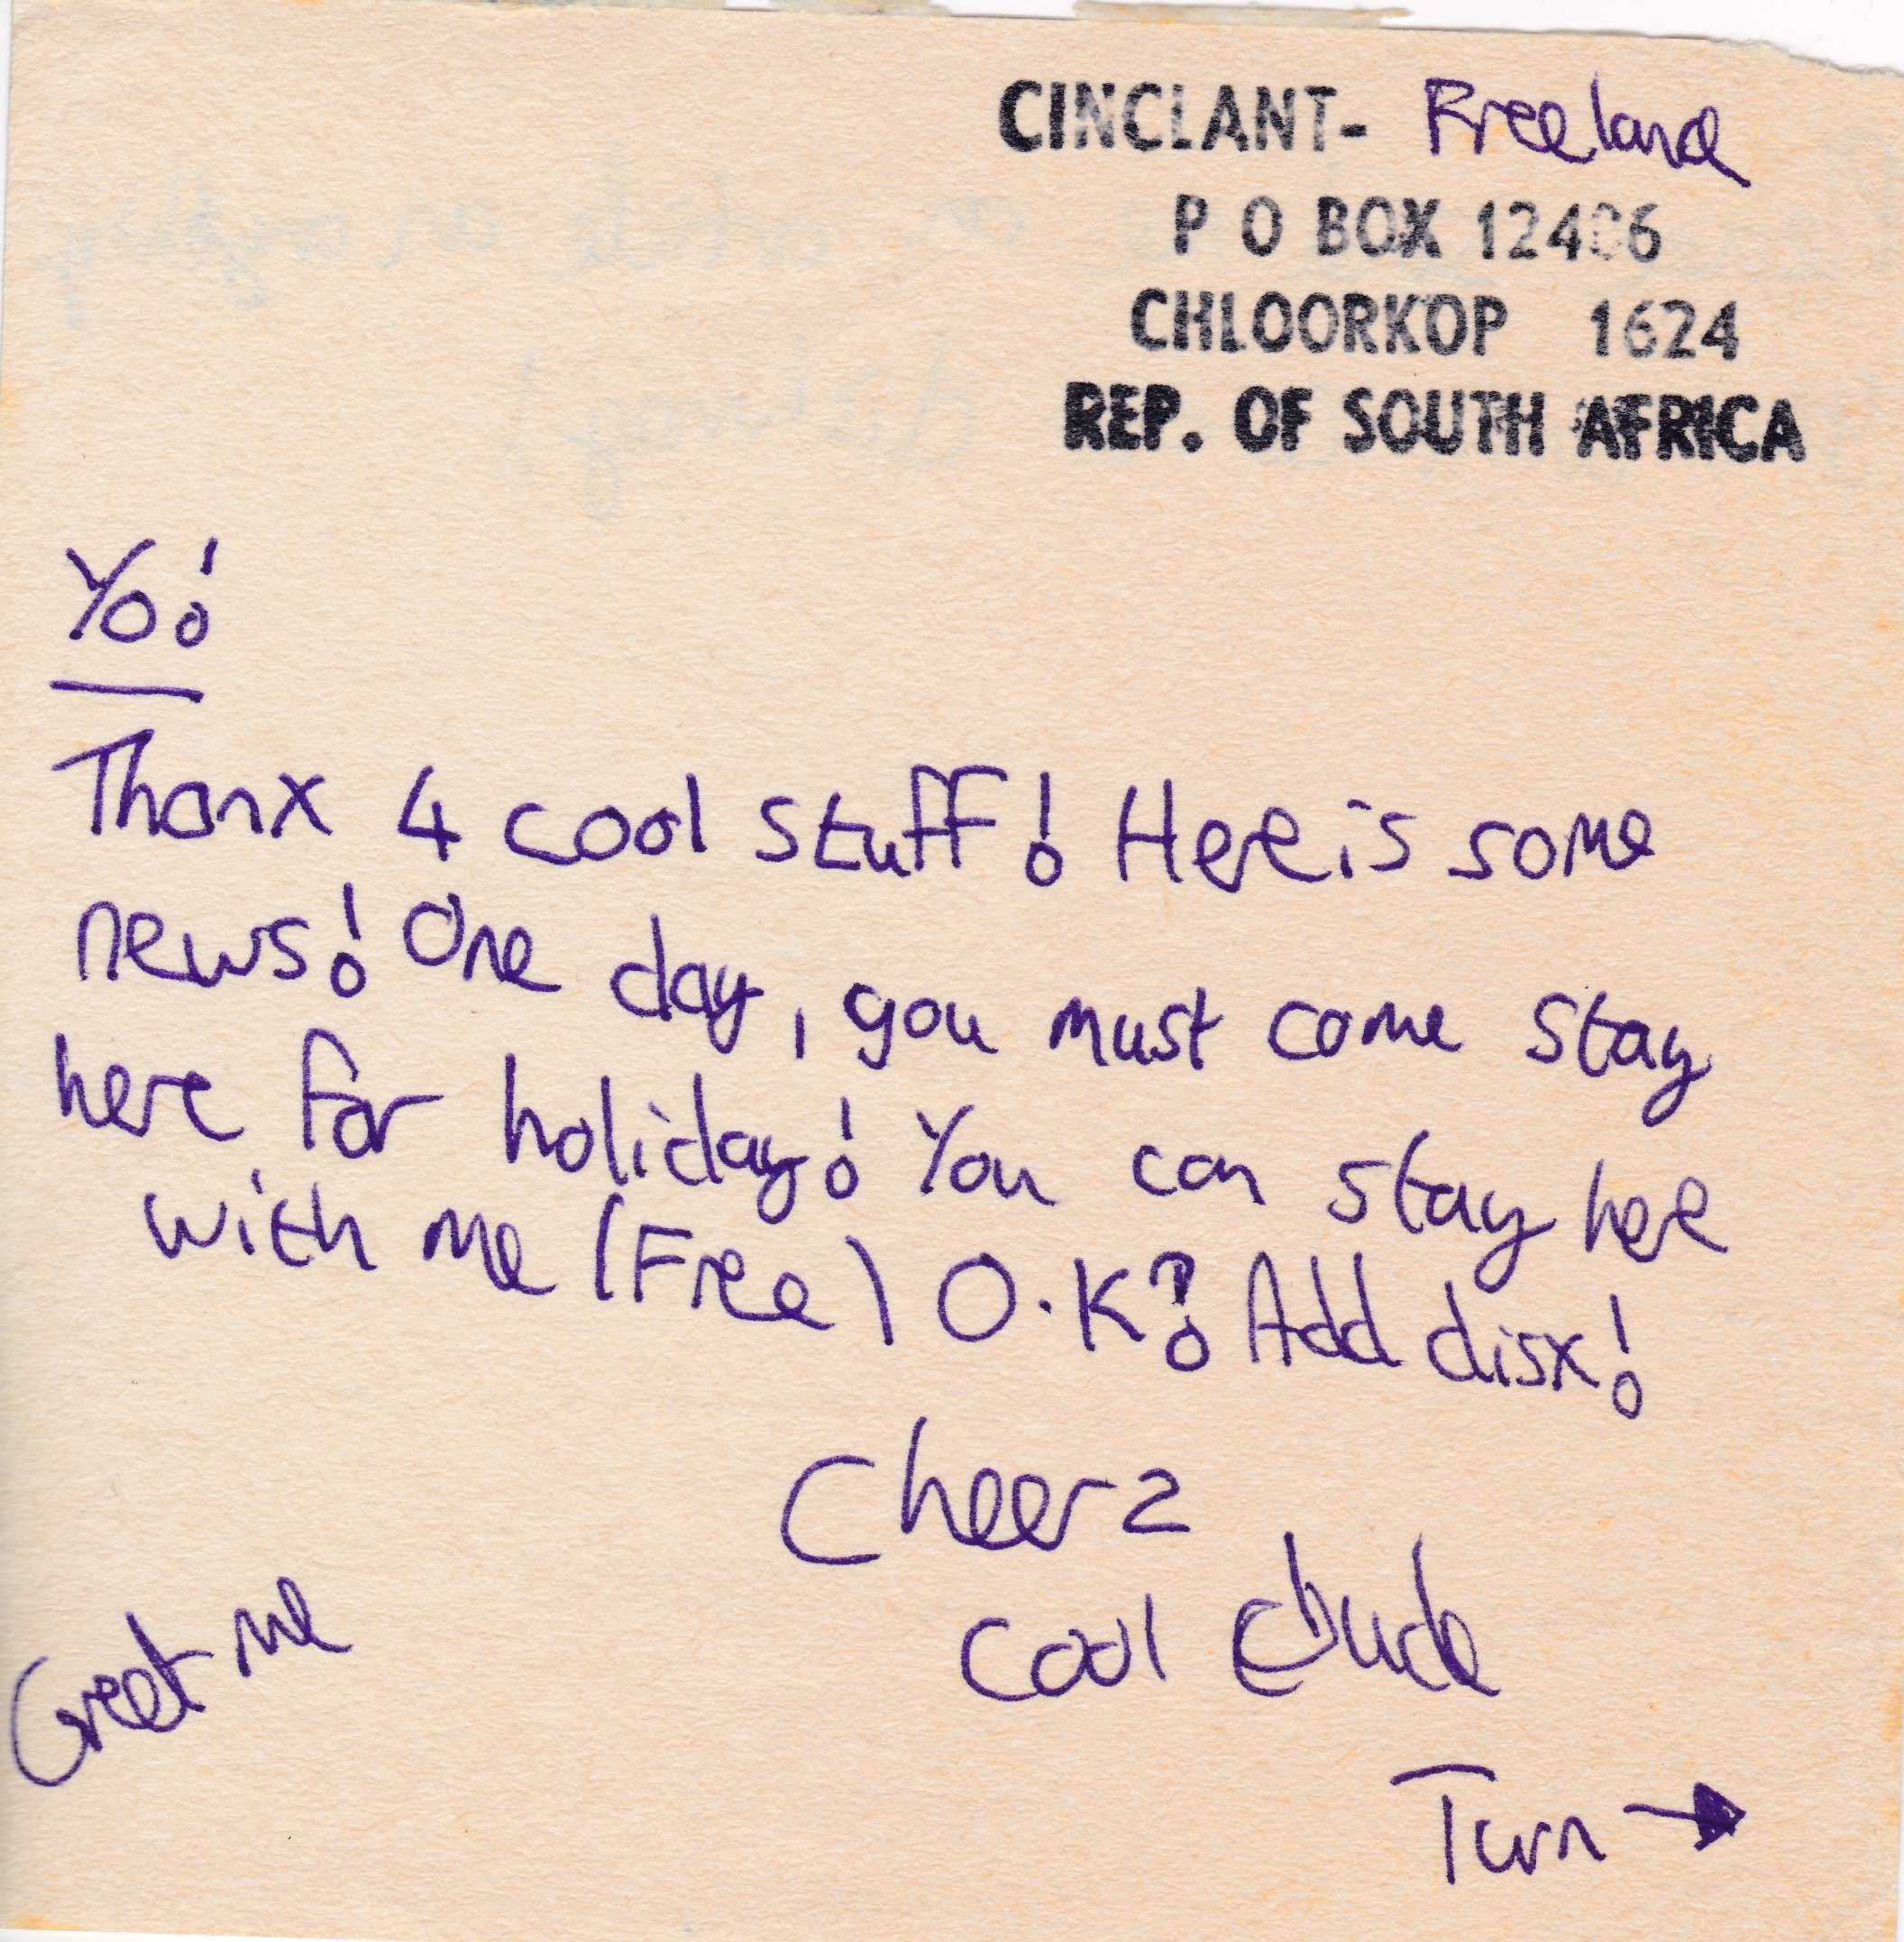 CINCLANT- Freeland
P O BOX 12406
CHLOORKOP 1624
REP. OF SOUTH AFRICA
Yo!
Thanx 4 cool stuff! Here is some
news! One day, you must come stay
here for holiday! You can stay here
with me (Free) O.K? Add disx!
Cheerz
Cool dude
Greet me
Turn →